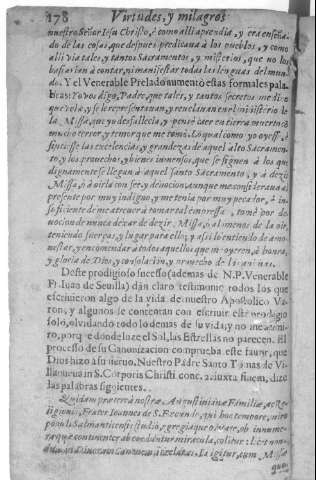 178 Virtudes, y milagros
nuestro Señor Iesu Christo, è como alli aprendia, y era enseña-
do de las cosas que despues predicaua à los pueblos, y como
alli via tales, y tantos Sacramentos, y misterios, que no los
bastarian à contar, ni manifestar todas las lenguas del mun-
do. Y el Venerable Prelado numentò estas formales pala-
bras: Yo vos digo, Padre, que tales, y tantos secretos me dixo
que veìa, y se le representauan, y reuelauan en el misterio de
la Missa, que yo desfallecia, y pensè caer en tierra muerto de
mucho terror, y temor que me tomò. Lo qual como yo oyesse, è
sintiesse las excelencias, y grandezas de aquel alto Sacramen-
to, y los prouechos, y bienes inmensos, que se siguen à los que
dignamente se llegan à aquel Santo Sacramento, y à dezir
Missa, ò à oirla con fee, y deuocion, aunque me consideraua al
presente por muy indigno, y me tenia por muy pecador, è in-
suficiente de me atreuer à tomar tal empressa, tomè por de
uocion de nunca dexar de dezir Missa, ò à lo menos de la oir,
teniendo fuerças, y lugar para ello; y assi lo entiendo de amo-
nestar, y encomendar à todos aquellos que me oyeren, à honra,
y gloria de Dios, y consolacion, y prouecho de las animas.
Deste prodigioso sucesso (ademas de N. P. Venerable
Fr. Iuan de Seuilla) dàn claro testimonio todos los que
escriuieron algo de la vida de nuestro Apostolico Va-
ron, y algunos se contentan con escriuir este prodigio
solo, oluidando todo lo demas de su vida; y no me admi-
ro, porque donde luze el Sol, las Estrellas no parecen. El
processo de su Canonizacion comprueba este fauor, que
Dios hizo à su sieruo. Nuestro Padre Santo Tomas de Vi-
llanueua in S. Corporis Christi conc. 2. iuxta finem, dize
las palabras siguientes.
Quidam præterea nostræ Augustinianæ Familiæ, ac Re-
ligionis, Frater Ioannes de S. Facundo, qui hoc tempore, in
pido Salmanticensi studio, egregiaque obrare, ob innume-
raque continenter ab eo eduntur miracula, colitur: licet non-
dum in Diuorum Canonem relatus. Is igitur, cum Missæ
que-